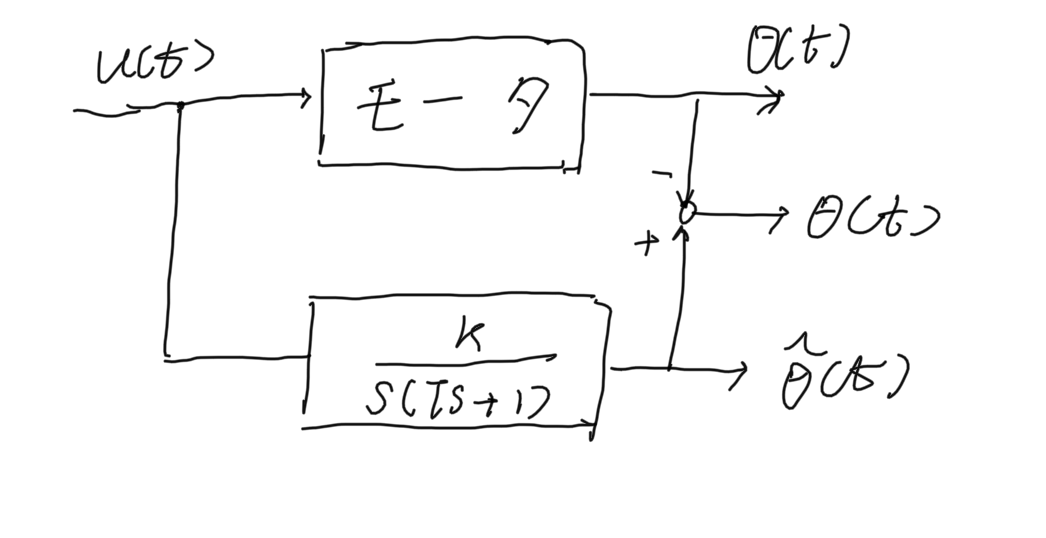 u(t)
モータ
θ(t)
-
+
θ(t)
K
S(TS+1)
θ̂(t)